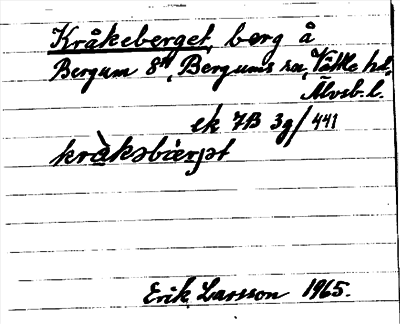 Kråkeberget, berg å
Bergum 8¹⁴, Bergums sn, Vättle hd,
Älvsb. l.
ek 7B 3g/441
kràksbærjət
Erik Larsson 1965.